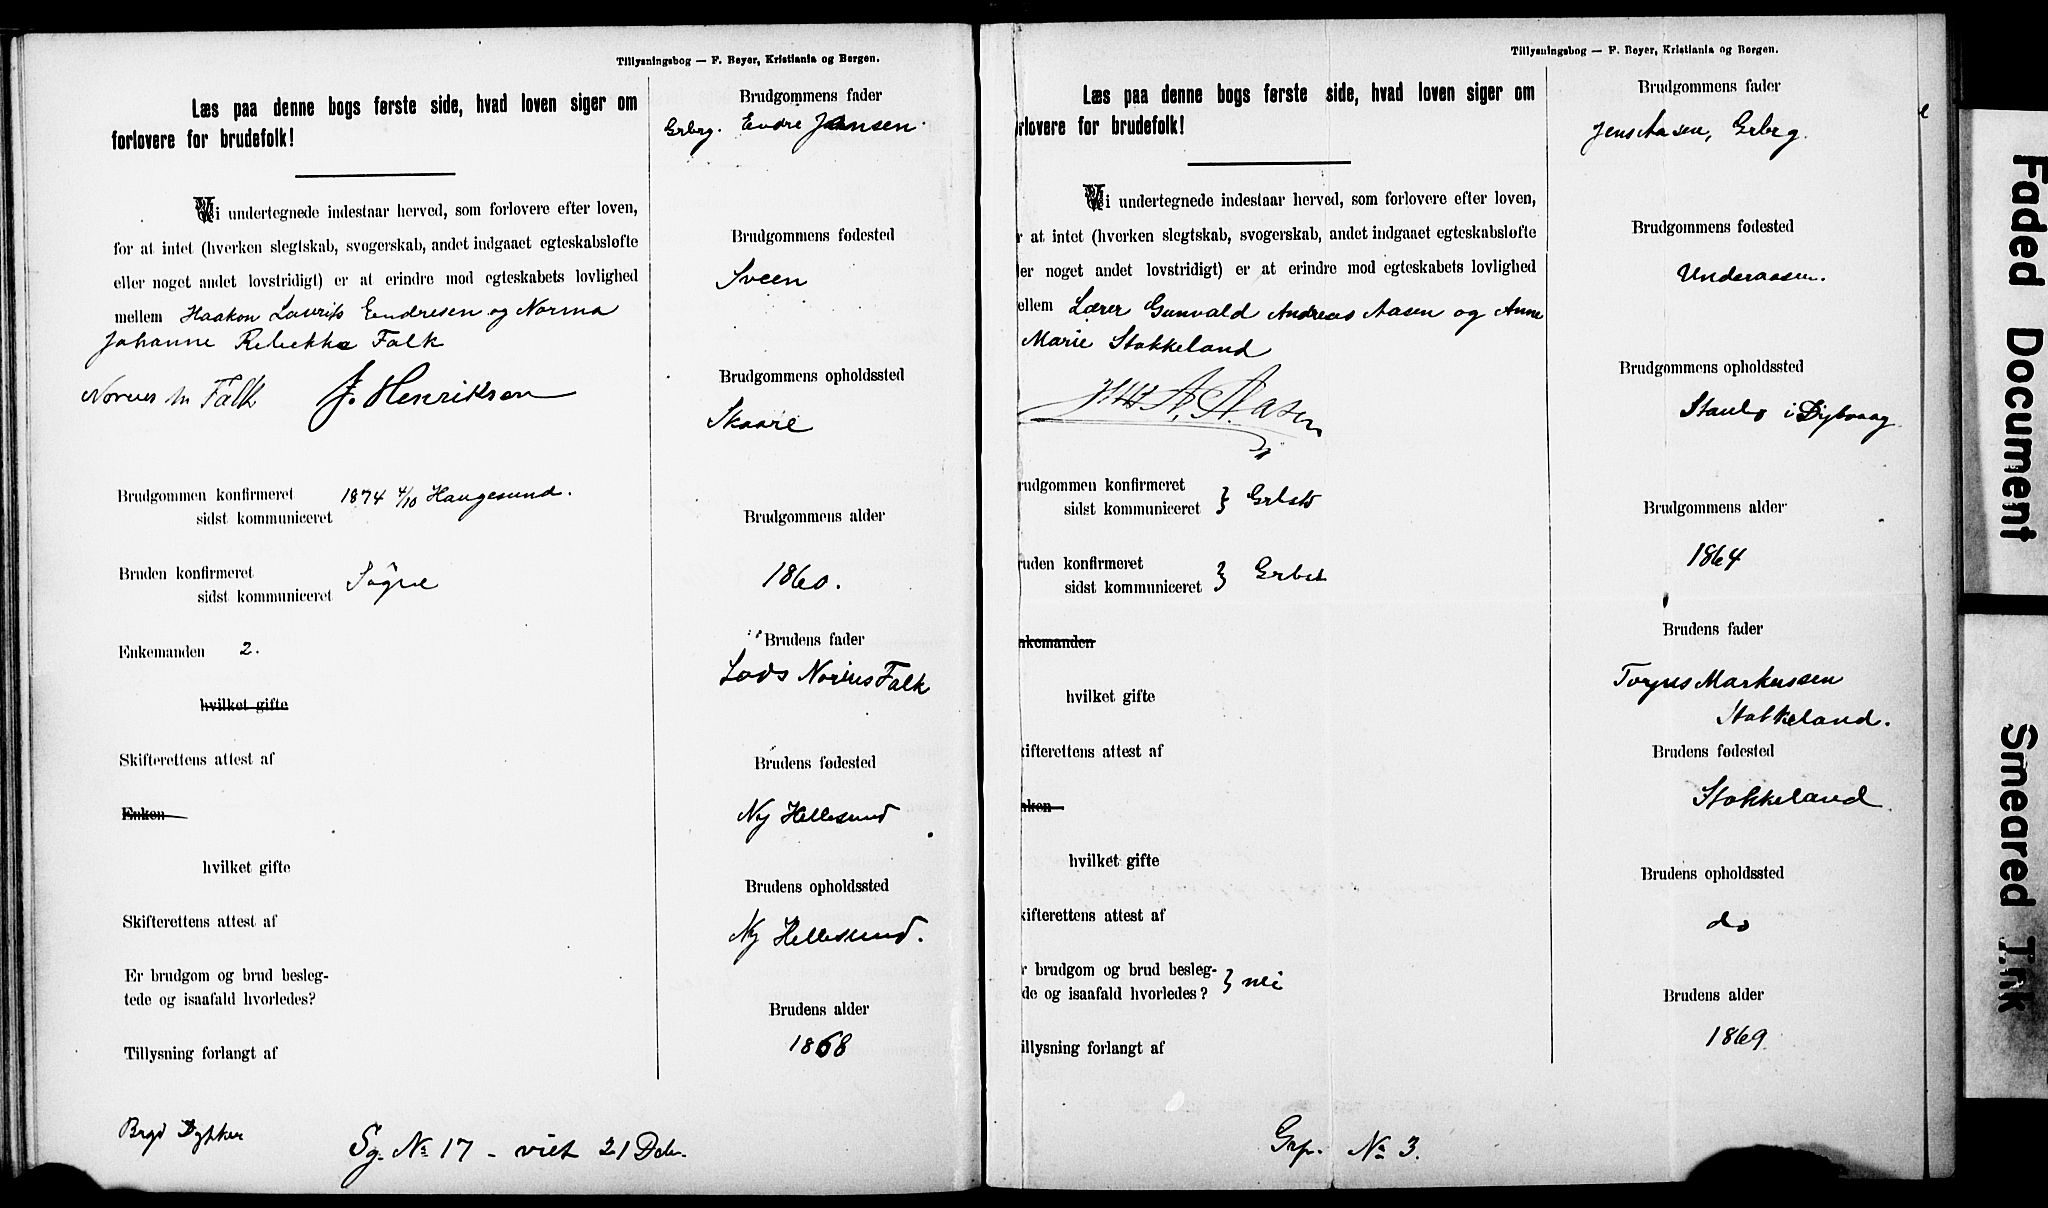 Tillysningsbog — F. Beyer, Kristiania og Bergen.
Læs paa denne bogs første side, hvad loven siger om
forlovere for brudefolk!
Vi undertegnede indestaar herved, som forlovere efter loven,
for at intet (hverken slegtskab, svogerskab, andet indgaaet egteskabsløfte
eller noget andet lovstridigt) er at erindre mod egteskabets lovlighed
mellem Haakon Laurits Endresen og Norma
Johanne Rebekka Falk
Falk J. Henriksen
Brudgommen konfirmeret 1874 4/10 Haugesund.
sidst kommuniceret
Bruden konfirmeret Søgne
sidst kommuniceret
Enkemanden 2.
hvilket gifte
Skifterettens attest af
Enken
hvilket gifte
Skifterettens attest af
Er brudgom og brud besleg-
tede og isaafald hvorledes?
Tillysning forlangt af
Dykker
Sg. No 17 - viet 21 Debr.
Brudgommens fader
Grbrg. Endre Jansen.
Brudgommens fødested
Sveen
Brudgommens opholdssted
Skaare
Brudgommens alder
1860.
Brudens fader
Lods Norius Falk
Brudens fødested
Ny Hellesund
Brudens opholdssted
Ny Hellesund.
Brudens alder
1868
Tillysningsbog — F. Beyer, Kristiania og Bergen.
Læs paa denne bogs første side, hvad loven siger om
rlovere for brudefolk!
Vi undertegnede indestaar herved, som forlovere efter loven,
r at intet (hverken slegtskab, svogerskab, andet indgaaet egteskabsløfte
ler noget andet lovstridigt) er at erindre mod egteskabets lovlighed
ellem Lærer Gunvald Andreas Aasen og Anne
Marie Stokkeland
A. Aasen
rudgommen konfirmeret
sidst kommuniceret } Grbst
ruden konfirmeret
sidst kommuniceret } Grbst
nkemanden
hvilket gifte
kifterettens attest af
nken
hvilket gifte
kifterettens attest af
r brudgom og brud besleg-
de og isaafald hvorledes? } nei
illysning forlangt af
Grp. No 3.
Brudgommens fader
Jens Aasen, Grbrg.
Brudgommens fødested
Underaasen.
Brudgommens opholdssted
i Dybvaag
Brudgommens alder
1864
Brudens fader
Torjus Markussen
Stokkeland.
Brudens fødested
Stokkeland
Brudens opholdssted
do
Brudens alder
1869
Faded Document
Smeared Ink